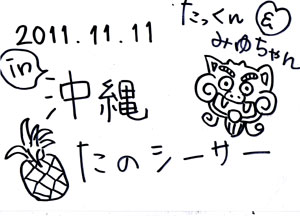 2011.11.11
たっくん&
みゆちゃん
in
沖縄
たのシーサー